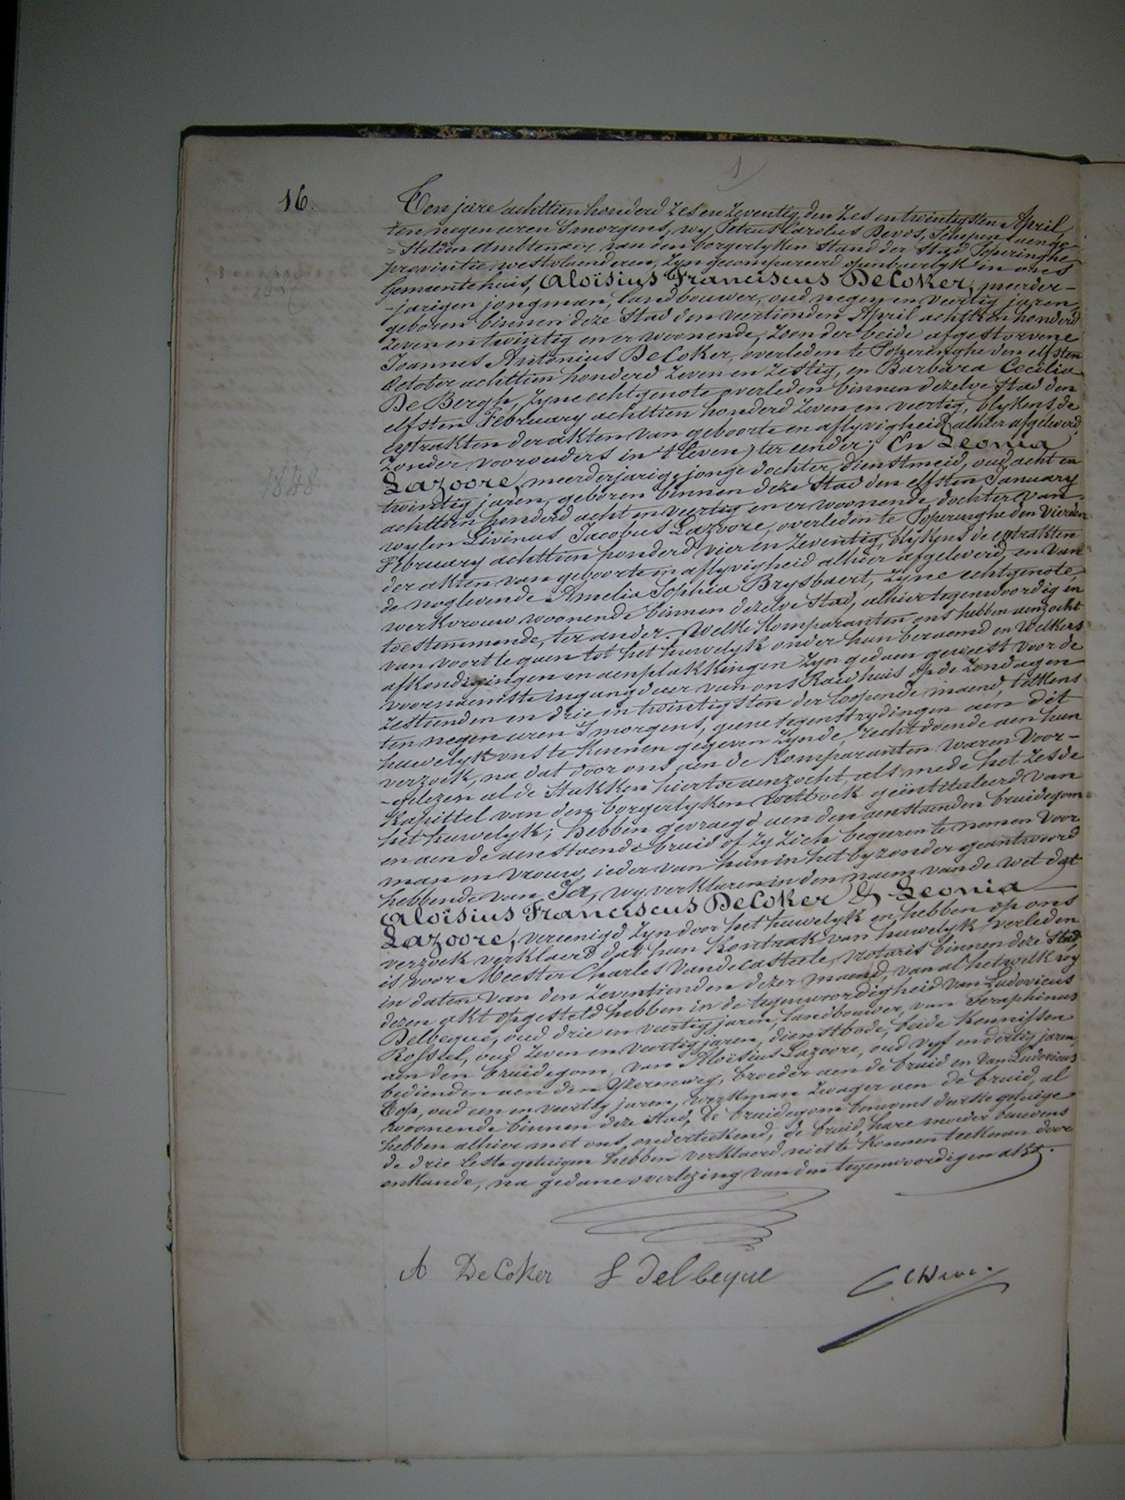 16.
Ten jare achttien honderd zes en zeventig, den zes en twintigsten April,
ten negen uren 's morgens, wy Petrus Carolus Devos, Schepen aenge-
-stelden Ambtenaer van den borgerlyken stand der Stad Poperinghe
provintie westvlaenderen, zyn gecompareerd openbaerlyk in ons
Gemeentehuis, Aloïsius Franciscus DeCoker, meerder-
-jarigen jongman, landbouwer, oud negen en veertig jaren,
geboren binnen deze Stad den veertienden April achttien honderd
zeven en twintig en er woonende, zoon der beide afgestorvene
Joannes Antonius DeCoker, overleden te Poperinghe den elfsten
October achttien honderd zeven en zestig, en Barbara Cecilia
De Bergh, zyne echtgenote overleden binnen dezelve stad den
elfsten February achttien honderd zeven en veertig, blykens de
extrakten der akten van geboorte en aflyvigheid alhier afgeleverd,
zonder voorouders in 't leven, ter eender; En Leonia
Lazoore, meerderjarige jonge dochter, dienstmeid, oud acht en
twintig jaren, geboren binnen deze Stad den elfsten January
achttien honderd acht en veertig en er woonende, dochter van
wylen Livinus Jacobus Lazoore, overleden te Poperinghe den vierden
February achttien honderd vier en zeventig, blykens de extrakten
der akten van geboorte en aflyvigheid alhier afgeleverd, en van
de noglevende Amelia Sophia Brysbaert, zyne echtgenote,
werkvrouw woonende binnen dezelve stad, alhier tegenwoordig en
toestemmende, ter ander. Welke Komparanten ons hebben aenzocht
van voort te gaen tot het huwelyk onder hun beraemd en welkers
afkondigingen en aenplakkingen zyn gedaen geweest voor de
voornaemste ingangdeur van ons Raedhuis op de zondagen
zestienden en drie en twintigsten der loopende maend, telkens
ten negen uren 's morgens, geene tegenstrydingen aen dit
huwelyk ons te kennen gegeven zynde, recht doende aen hun
verzoek, na dat door ons aen de Komparanten waren voor-
-gelezen al de stukken hiertoe aenzocht, als mede het zesde
Kapittel van den borgerlyken wetboek geintituleerd van
het huwelyk; hebben gevraegd aen den aenstaenden bruidegom
en aen de aenstaende bruid of zy zich begeeren te nemen voor
man en vrouw, ieder van hun in het byzonder geantwoord
hebbende van Ja, wy verklaren in den naem van de wet dat
Aloïsius Franciscus DeCoker & Leonia
Lazoore, vereenigd zyn door het huwelyk en hebben op ons
verzoek verklaerd dat hun Kontrakt van huwelyk verleden
is voor Meester Charles Vandecasteele, notaris binnen deze Stad,
in daten van den zeventienden dezer maend, van al het welk wy
dezen akt opgesteld hebben in de tegenwoordigheid van Ludovicus
Delbeque, oud drie en veertig jaren, landbouwer, van Seraphinus
Rossel, oud zeven en veertig jaren, dienstbode, beide Kennissen
aen den bruidegom, van Aloïsius Lazoore, oud vyf en dertig jaren,
bedienden aen den yzerenweg, broeder aen de bruid en van Ludovicus
Top, oud een en veertig jaren, werkman, zwager aen de bruid, al
woonende binnen deze stad, De bruidegom benevens d'eerste getuige
hebben alhier met ons onderteekend, de bruid, hare moeder benevens
de drie leste getuigen hebben verklaerd niet te konnen teekenen door
onkunde, na gedane overlezing van den tegenwoordigen akt.
A DeCoker L Delbeque
1848